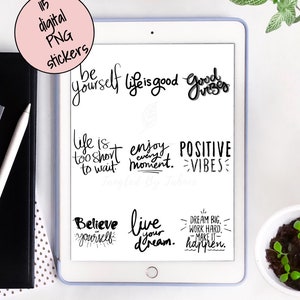 115
digital
PNG
stickers
be
yourself
life is good
Good
vibes
life is
too short
to wait
enjoy
every
moment.
POSITIVE
VIBES
Believe
yourself
live
your
dream.
DREAM BIG,
WORK HARD,
MAKE IT
happen.